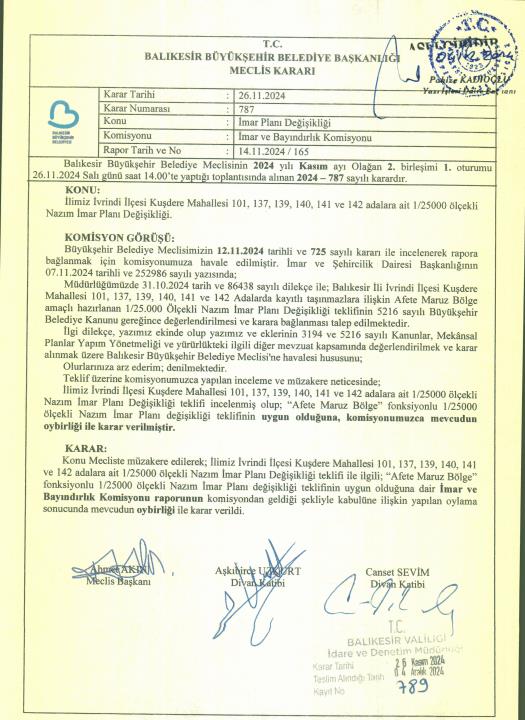 T.C.
BALIKESİR BÜYÜKŞEHİR BELEDİYE BAŞKANLIĞI
MECLİS KARARI
ASLI GİBİDİR
T.C.
Yazı İşleri
BALIKESİR
BÜYÜKŞEHİR
BELEDİYESİ
Karar Tarihi : 26.11.2024
Karar Numarası : 787
Konu : İmar Planı Değişikliği
Komisyonu : İmar ve Bayındırlık Komisyonu
Rapor Tarih ve No : 14.11.2024 / 165
Balıkesir Büyükşehir Belediye Meclisinin 2024 yılı Kasım ayı Olağan 2. birleşimi 1. oturumu
26.11.2024 Salı günü saat 14.00'te yaptığı toplantısında alınan 2024 – 787 sayılı karardır.
KONU:
İlimiz İvrindi İlçesi Kuşdere Mahallesi 101, 137, 139, 140, 141 ve 142 adalara ait 1/25000 ölçekli
Nazım İmar Planı Değişikliği.
KOMİSYON GÖRÜŞÜ:
Büyükşehir Belediye Meclisimizin 12.11.2024 tarihli ve 725 sayılı kararı ile incelenerek rapora
bağlanmak için komisyonumuza havale edilmiştir. İmar ve Şehircilik Dairesi Başkanlığının
07.11.2024 tarihli ve 252986 sayılı yazısında;
Müdürlüğümüzde 31.10.2024 tarih ve 86438 sayılı dilekçe ile; Balıkesir İli İvrindi İlçesi Kuşdere
Mahallesi 101, 137, 139, 140, 141 ve 142 Adalarda kayıtlı taşınmazlara ilişkin Afete Maruz Bölge
amaçlı hazırlanan 1/25.000 Ölçekli Nazım İmar Planı Değişikliği teklifinin 5216 sayılı Büyükşehir
Belediye Kanunu gereğince değerlendirilmesi ve karara bağlanması talep edilmektedir.
İlgi dilekçe, yazımız ekinde olup yazımız ve eklerinin 3194 ve 5216 sayılı Kanunlar, Mekânsal
Planlar Yapım Yönetmeliği ve yürürlükteki ilgili diğer mevzuat kapsamında değerlendirilmek ve karar
alınmak üzere Balıkesir Büyükşehir Belediye Meclisi'ne havalesi hususunu;
Olurlarınıza arz ederim; denilmektedir.
Teklif üzerine komisyonumuzca yapılan inceleme ve müzakere neticesinde;
İlimiz İvrindi İlçesi Kuşdere Mahallesi 101, 137, 139, 140, 141 ve 142 adalara ait 1/25000 ölçekli
Nazım İmar Planı Değişikliği teklifi incelenmiş olup; "Afete Maruz Bölge" fonksiyonlu 1/25000
ölçekli Nazım İmar Planı değişikliği teklifinin uygun olduğuna, komisyonumuzca mevcudun
oybirliği ile karar verilmiştir.
KARAR:
Konu Mecliste müzakere edilerek; İlimiz İvrindi İlçesi Kuşdere Mahallesi 101, 137, 139, 140, 141
ve 142 adalara ait 1/25000 ölçekli Nazım İmar Planı Değişikliği teklifi ile ilgili; "Afete Maruz Bölge"
fonksiyonlu 1/25000 ölçekli Nazım İmar Planı değişikliği teklifinin uygun olduğuna dair İmar ve
Bayındırlık Komisyonu raporunun komisyondan geldiği şekliyle kabulüne ilişkin yapılan oylama
sonucunda mevcudun oybirliği ile karar verildi.
Ahmet AKIN
Meclis Başkanı
Divan Katibi
Canset SEVİM
Divan Katibi
T.C.
BALIKESİR VALİLİĞİ
İdare ve Denetim Müdürlüğü
Karar Tarihi 26 Kasım 2024
Teslim Alındığı Tarih 04 Aralık 2024
Kayıt No 789